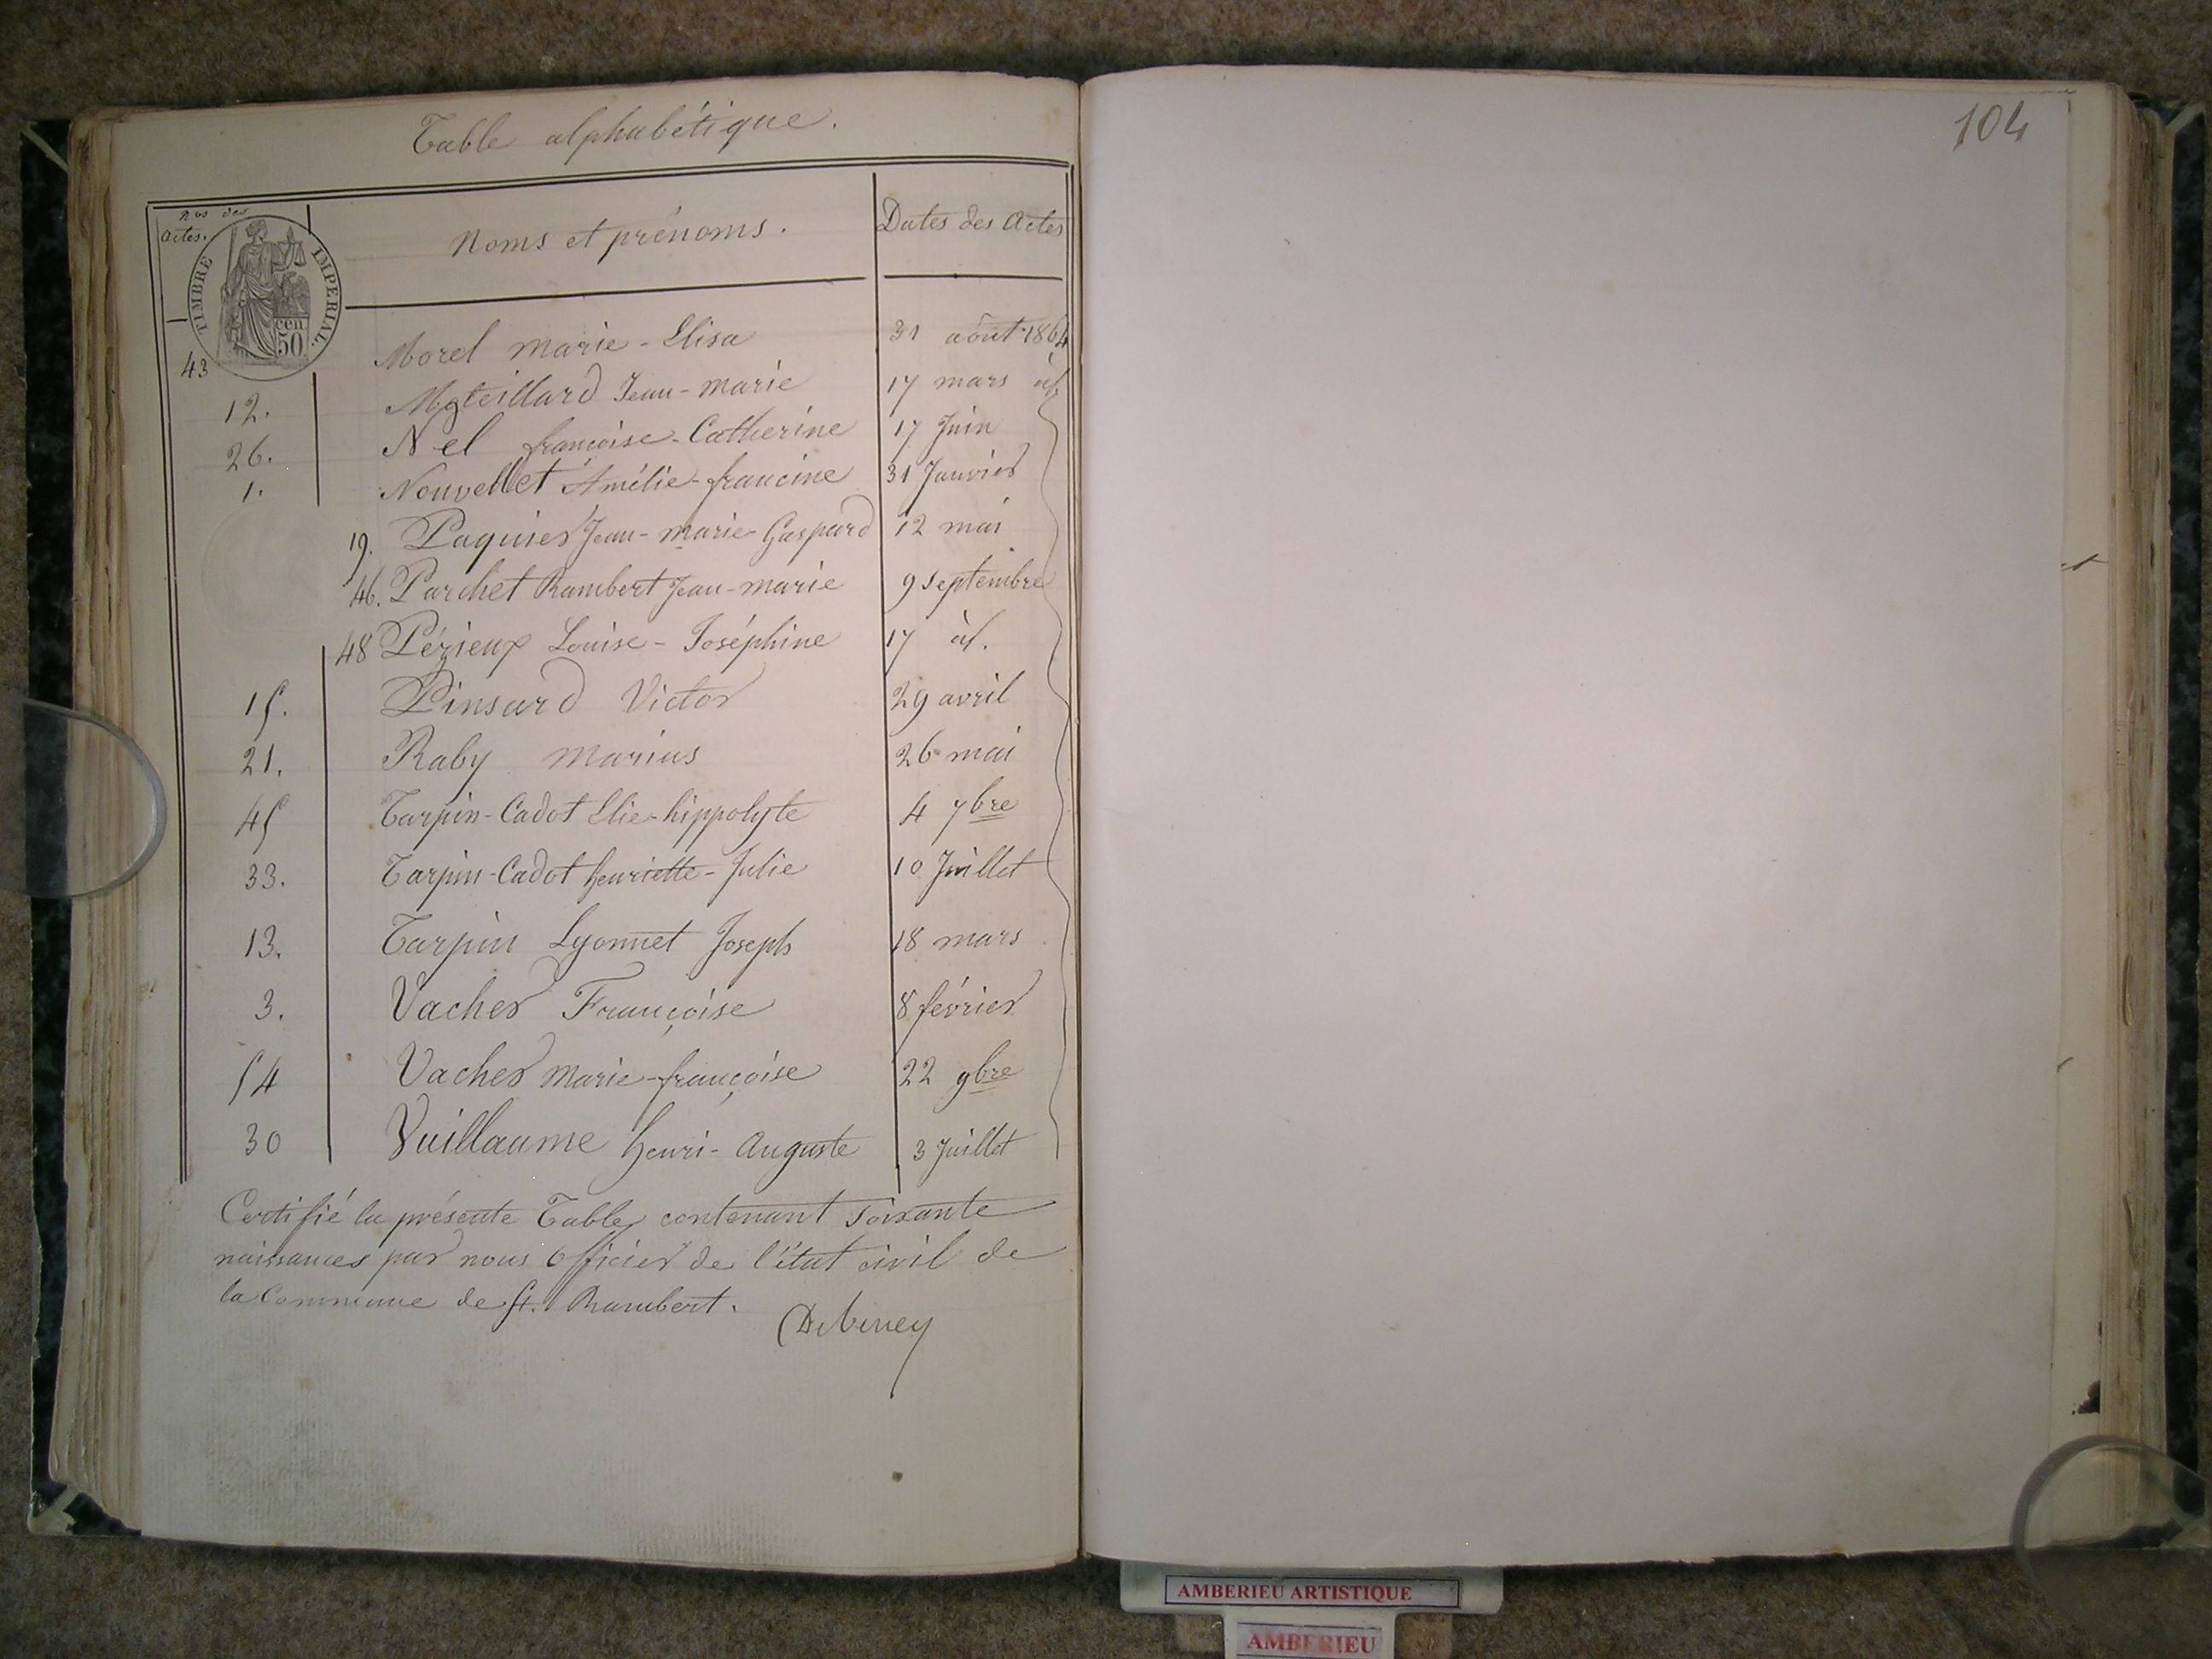 Table alphabétique.
Nos des
actes.
Noms et prénoms.
Dates des Actes
TIMBRE IMPERIAL.
cen.
50
43 Morel marie-Elisa 31 août 1864
12. Mgteillard Jean-marie 17 mars id.
26. Nel françoise-Catherine 17 Juin
1. Nouvellet Amélie-francine 31 Janvier
19. Paquier Jean-marie-Gaspard 12 mai
46. Parchet Rambert Jean-marie 9 septembre
48 Pézieux Louise-Joséphine 17 id.
15. Pinsard Victor 29 avril
21. Raby marius 26 mai
45 Tarpin-Cadot Elie-hippolyte 4 7bre
33. Tarpin-Cadot henriette-Julie 10 Juillet
13. Tarpin Lyonnet Joseph 18 mars
3. Vacher Françoise 8 février
54 Vacher marie-françoise 22 9bre
30 Vuillaume henri-Auguste 3 Juillet
Certifié la présente Table contenant soixante
naissances par nous Officier de l'état civil de
la Commune de St. Rambert.
Debeney
104
AMBERIEU ARTISTIQUE
AMBERIEU